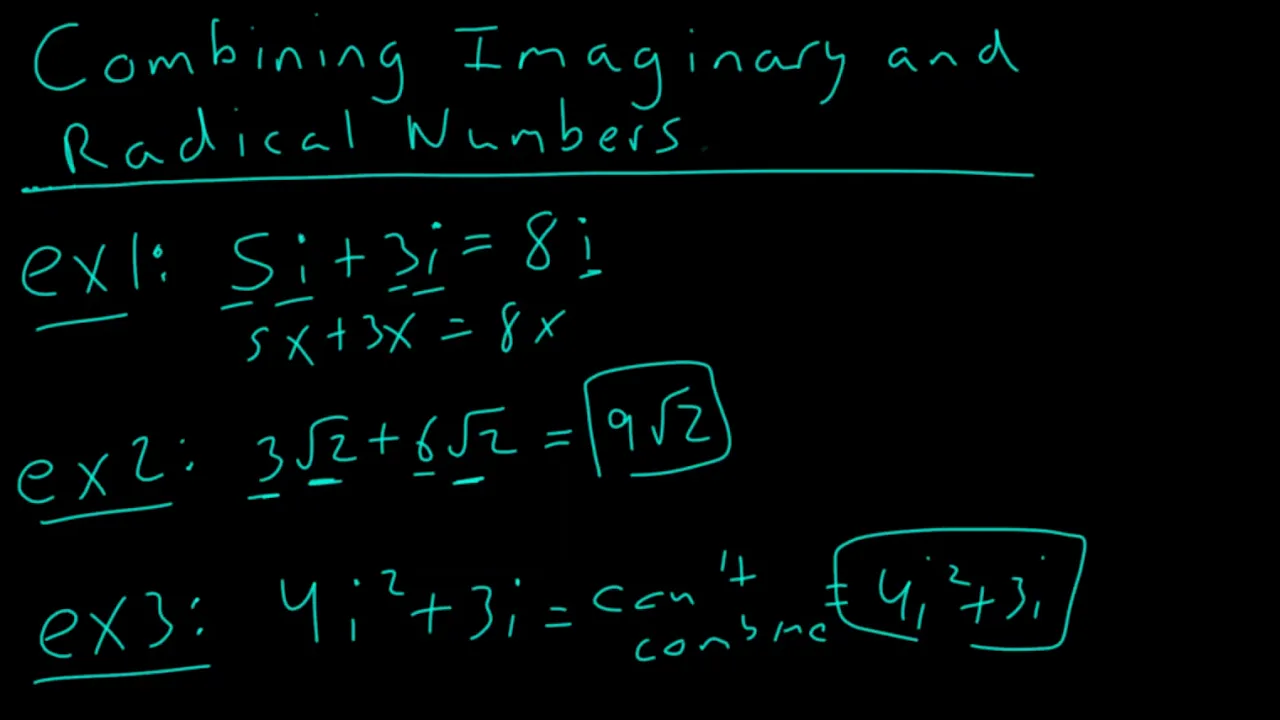 Combining Imaginary and
Radical Numbers
ex1: 5i + 3i = 8i
5x + 3x = 8x
ex2: 3√2 + 6√2 = 9√2
ex3: 4i² + 3i = can't combine = 4i² + 3i